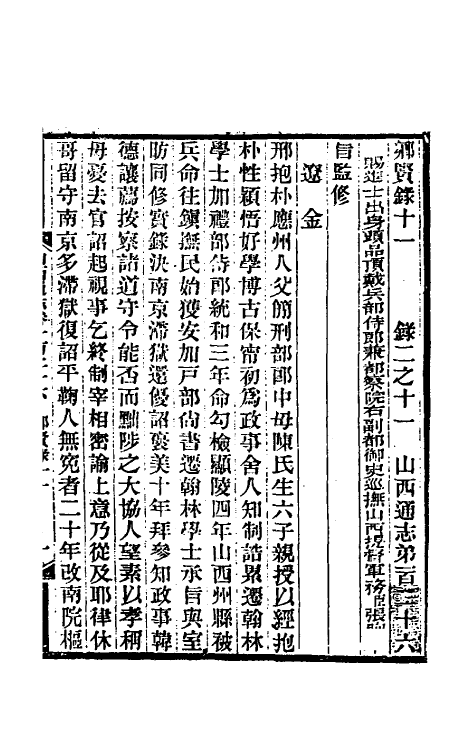 鄉賢錄十一　錄二之十一　山西通志弟一百三十六
賜進士出身頭品頂戴兵部侍郎兼都察院右副都御史巡撫山西提督軍務臣張
旨監修
遼　金
邢抱朴應州人父簡刑部郎中母陳氏生六子親授以經抱
朴性穎悟好學博古保甯初爲政事舍人知制誥累遷翰林
學士加禮部侍郎統和三年命勾檢顯陵四年山西州縣被
兵命往鎭撫民始獲安加戶部尙書遷翰林學士承旨與室
昉同修實錄決南京滯獄還優詔襃美十年拜參知政事韓
德讓薦按察諸道守令能否而黜陟之大協人望素以孝稱
母憂去官詔起視事乞終制宰相密諭上意乃從及耶律休
哥留守南京多滯獄復詔平鞠人無冤者二十年改南院樞